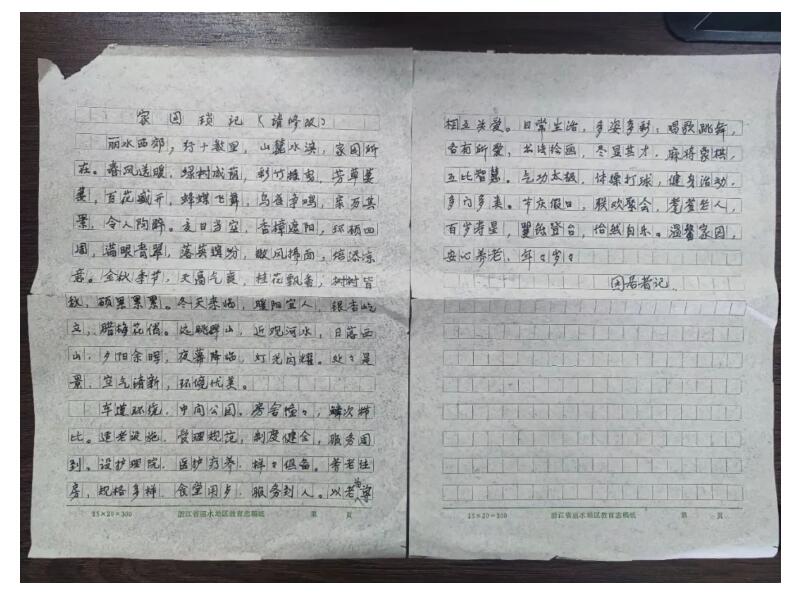 家园琐记（请修改）
丽水西郊，行十数里，山麓水滨，家园所
在。春风送暖，绿树成荫，彩竹摇曳，芳草萋
萋，百花盛开，蜂蝶飞舞，鸟雀争鸣，农历其
景，令人陶醉。夏日当空，香樟遮阳，环顾四
周，满眼青翠，落英缤纷，微风拂面，倍添凉
意。金秋季节，天高气爽，桂花飘香，树树皆
秋，硕果累累。冬天来临，暖阳宜人，银杏屹
立，腊梅花俏。远眺群山，近观河水，日落西
山，夕阳余晖，夜幕降临，灯光闪耀。处々是
景，空气清新，环境优美。
车道环绕，中间公园。房舍幢々，鳞次栉
比。适老设施，管理规范，制度健全，服务周
到。设护理院，医护疗养，样々俱备。养老住
房，规格多样，食堂用歺，服务到人。以老为尊
25×20=300 浙江省丽水地区教育志稿纸 第 頁
相互关爱。日常生活，多姿多彩，唱歌跳舞，
各有所爱，书法绘画，尽显其才，麻将象棋，
互比智慧。气功太极，体操打球，健身活动，
多门多类。节庆假日，联欢聚会，耄耋老人，
百岁寿星，登台，怡然自乐。温馨家园，
安心养老，年々岁々
园居者记
15×20=300 浙江省丽水地区教育志稿纸 第 頁